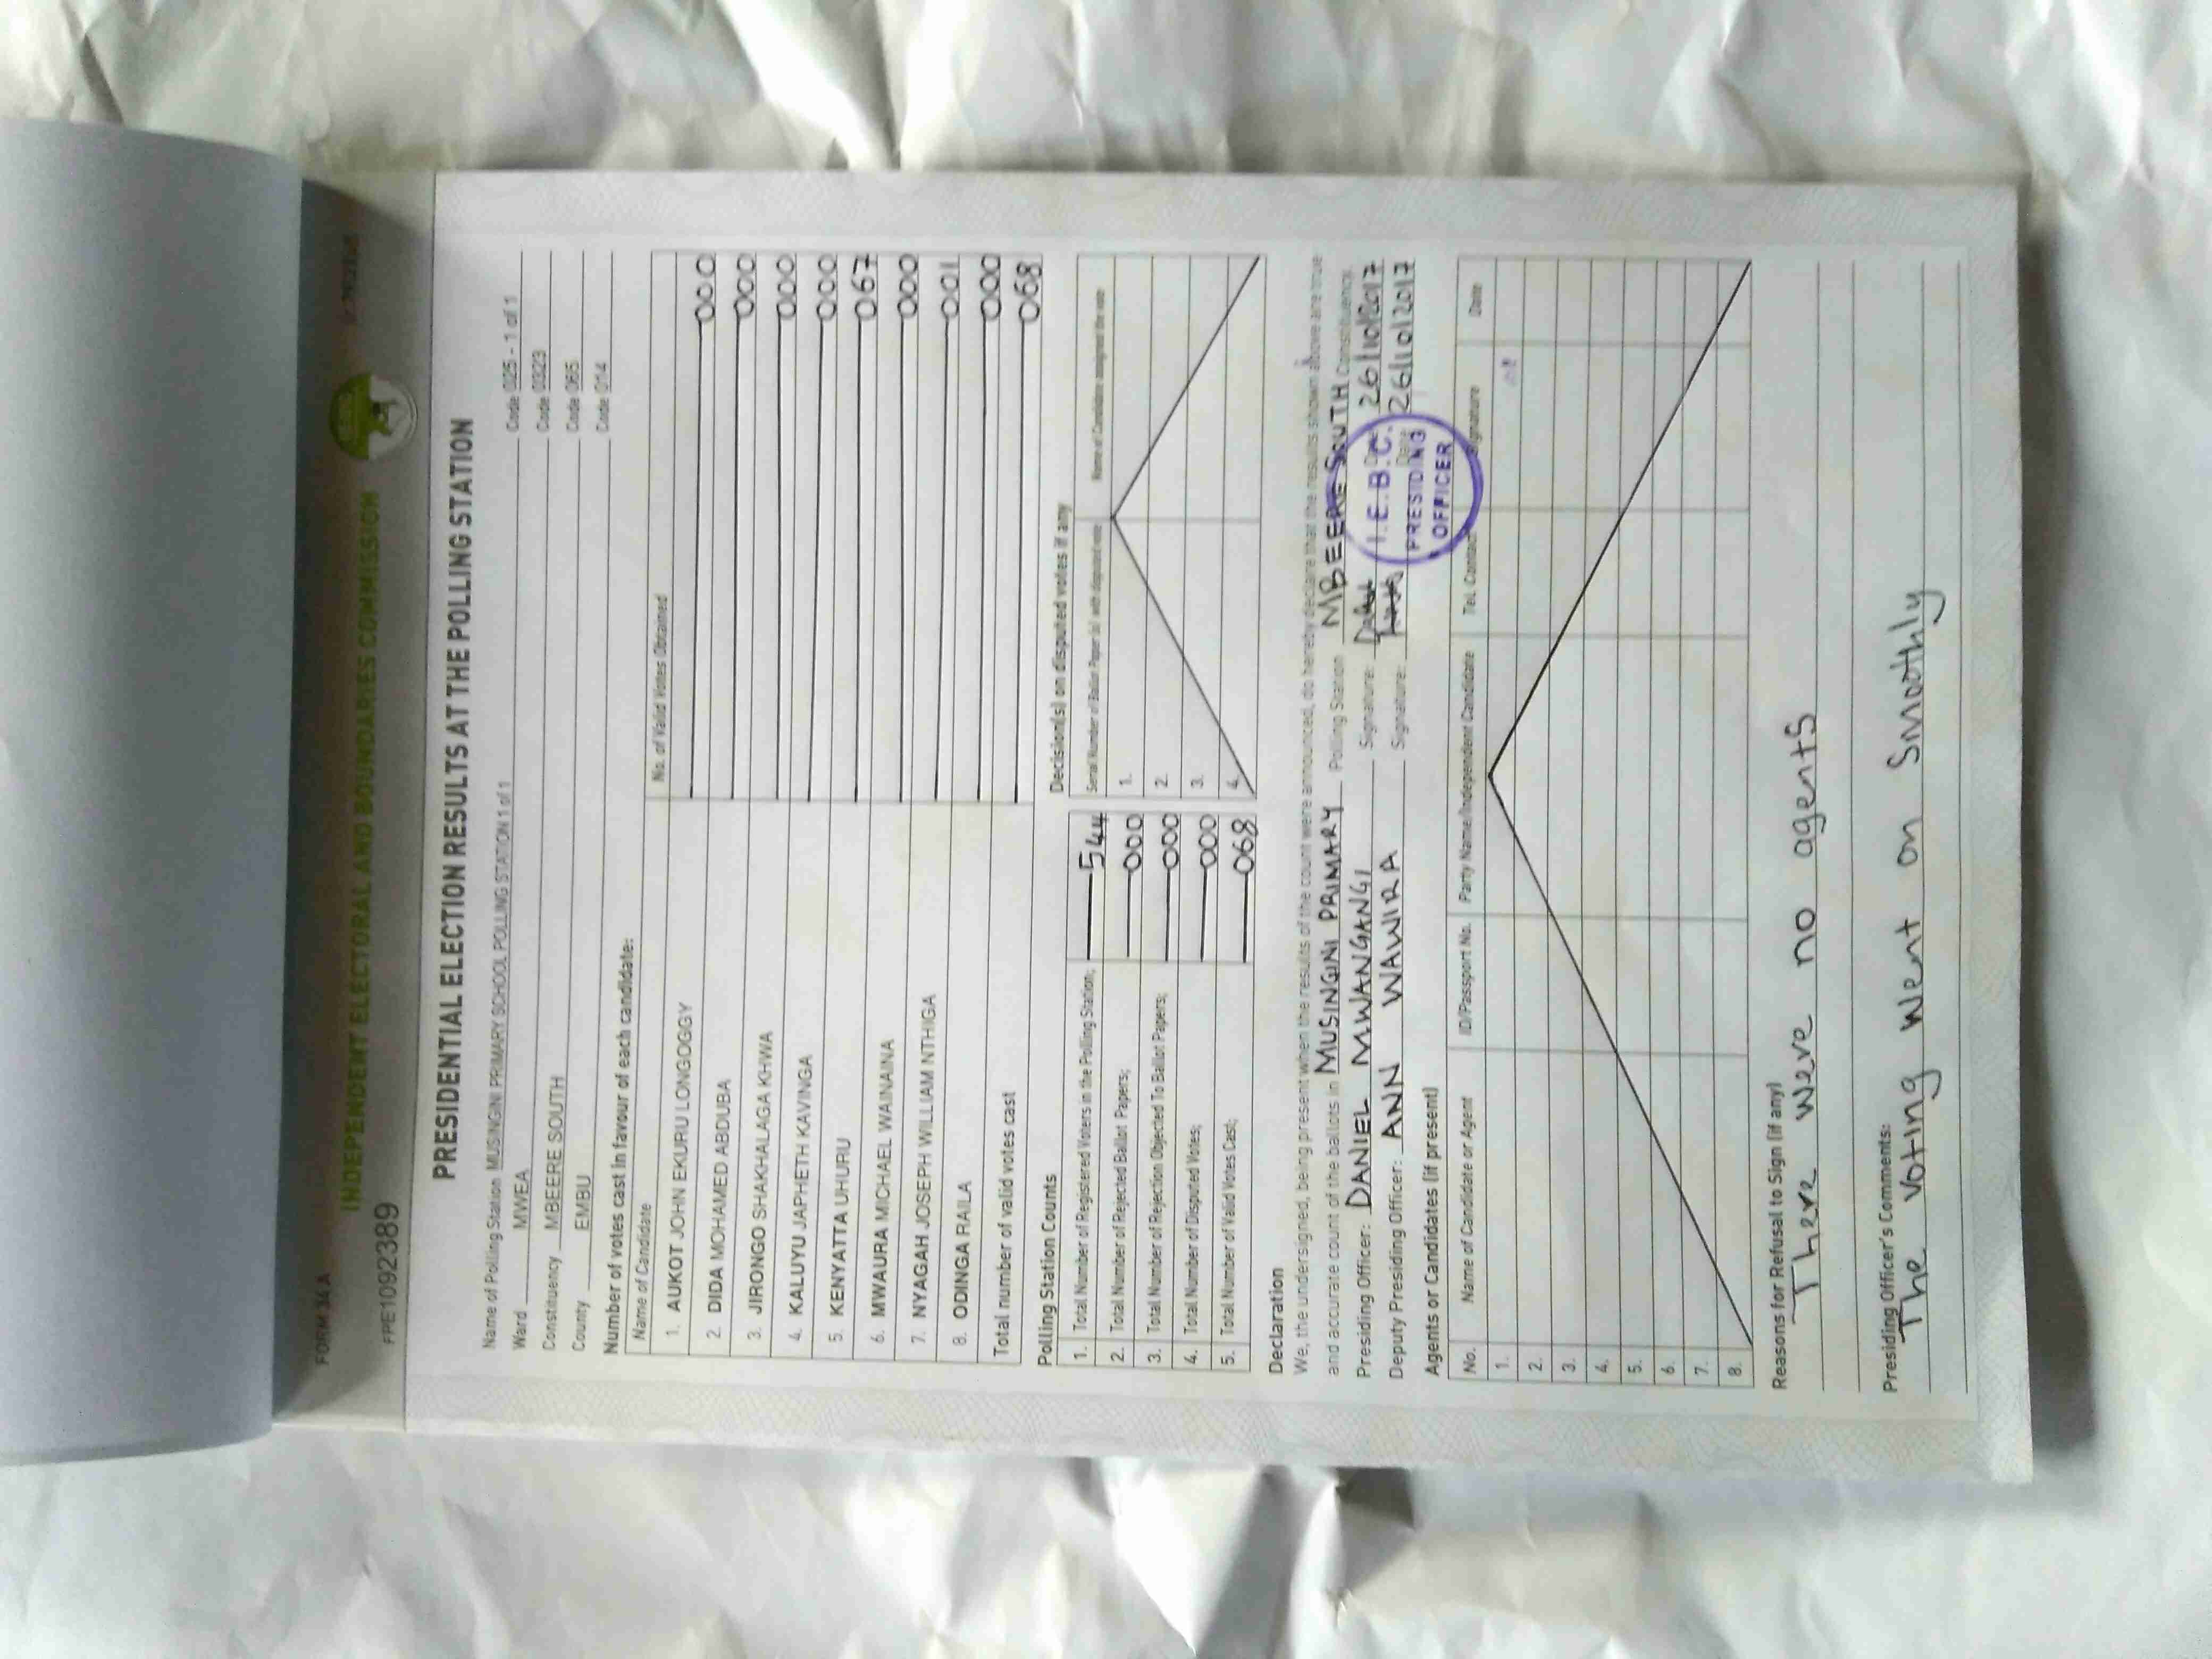 FORM 34A
INDEPENDENT ELECTORAL AND BOUNDARIES COMMISSION
FPE1092389
PRESIDENTIAL ELECTION RESULTS AT THE POLLING STATION
Name of Polling Station MUSINGINI PRIMARY SCHOOL POLLING STATION 1 of 1 Code 025 - 1 of 1
Ward MVEA Code 0323
Constituency MBEERE SOUTH Code 065
County EMBU Code 014
Number of votes cast in favour of each candidate:
Name of Candidate No. of Valid Votes Obtained
1. AUKOT JOHN EKURU LONGOGGY 000
2. DIDA MOHAMED ABDUBA 000
3. JIRONGO SHAKHALAGA KHWA 000
4. KALUYU JAPHETH KAVINGA 000
5. KENYATTA UHURU 067
6. MWAURA MICHAEL WAINAINA 000
7. NYAGAH JOSEPH WILLIAM NTHIGA 001
8. ODINGA RAILA 000
Total number of valid votes cast 068
Polling Station Counts
1. Total Number of Registered Voters in the Polling Station; 544
2. Total Number of Rejected Ballot Papers; 000
3. Total Number of Rejection Objected To Ballot Papers; 000
4. Total Number of Disputed Votes; 000
5. Total Number of Valid Votes Cast; 068
Decision(s) on disputed votes if any
Serial Number of Ballot Paper (s) with disputed vote Name of Candidate assigned the vote
1.
2.
3.
4.
Declaration
We, the undersigned, being present when the results of the count were announced, do hereby declare that the results shown above are true
and accurate count of the ballots in MUSINGINI PRIMARY Polling Station MBEERE SOUTH Constituency.
Presiding Officer: DANIEL MWANGANGI Signature: Date 26|10|2017
Deputy Presiding Officer: ANN WAWIRA Signature: Date 26|10|2017
I.E.B.C.
PRESIDING
OFFICER
Agents or Candidates (if present)
No. Name of Candidate or Agent ID/Passport No. Party Name/Independent Candidate Tel. Contact Signature Date
1.
2.
3.
4.
5.
6.
7.
8.
Reasons for Refusal to Sign (if any)
There were no agents
Presiding Officer's Comments:
The voting went on smoothly